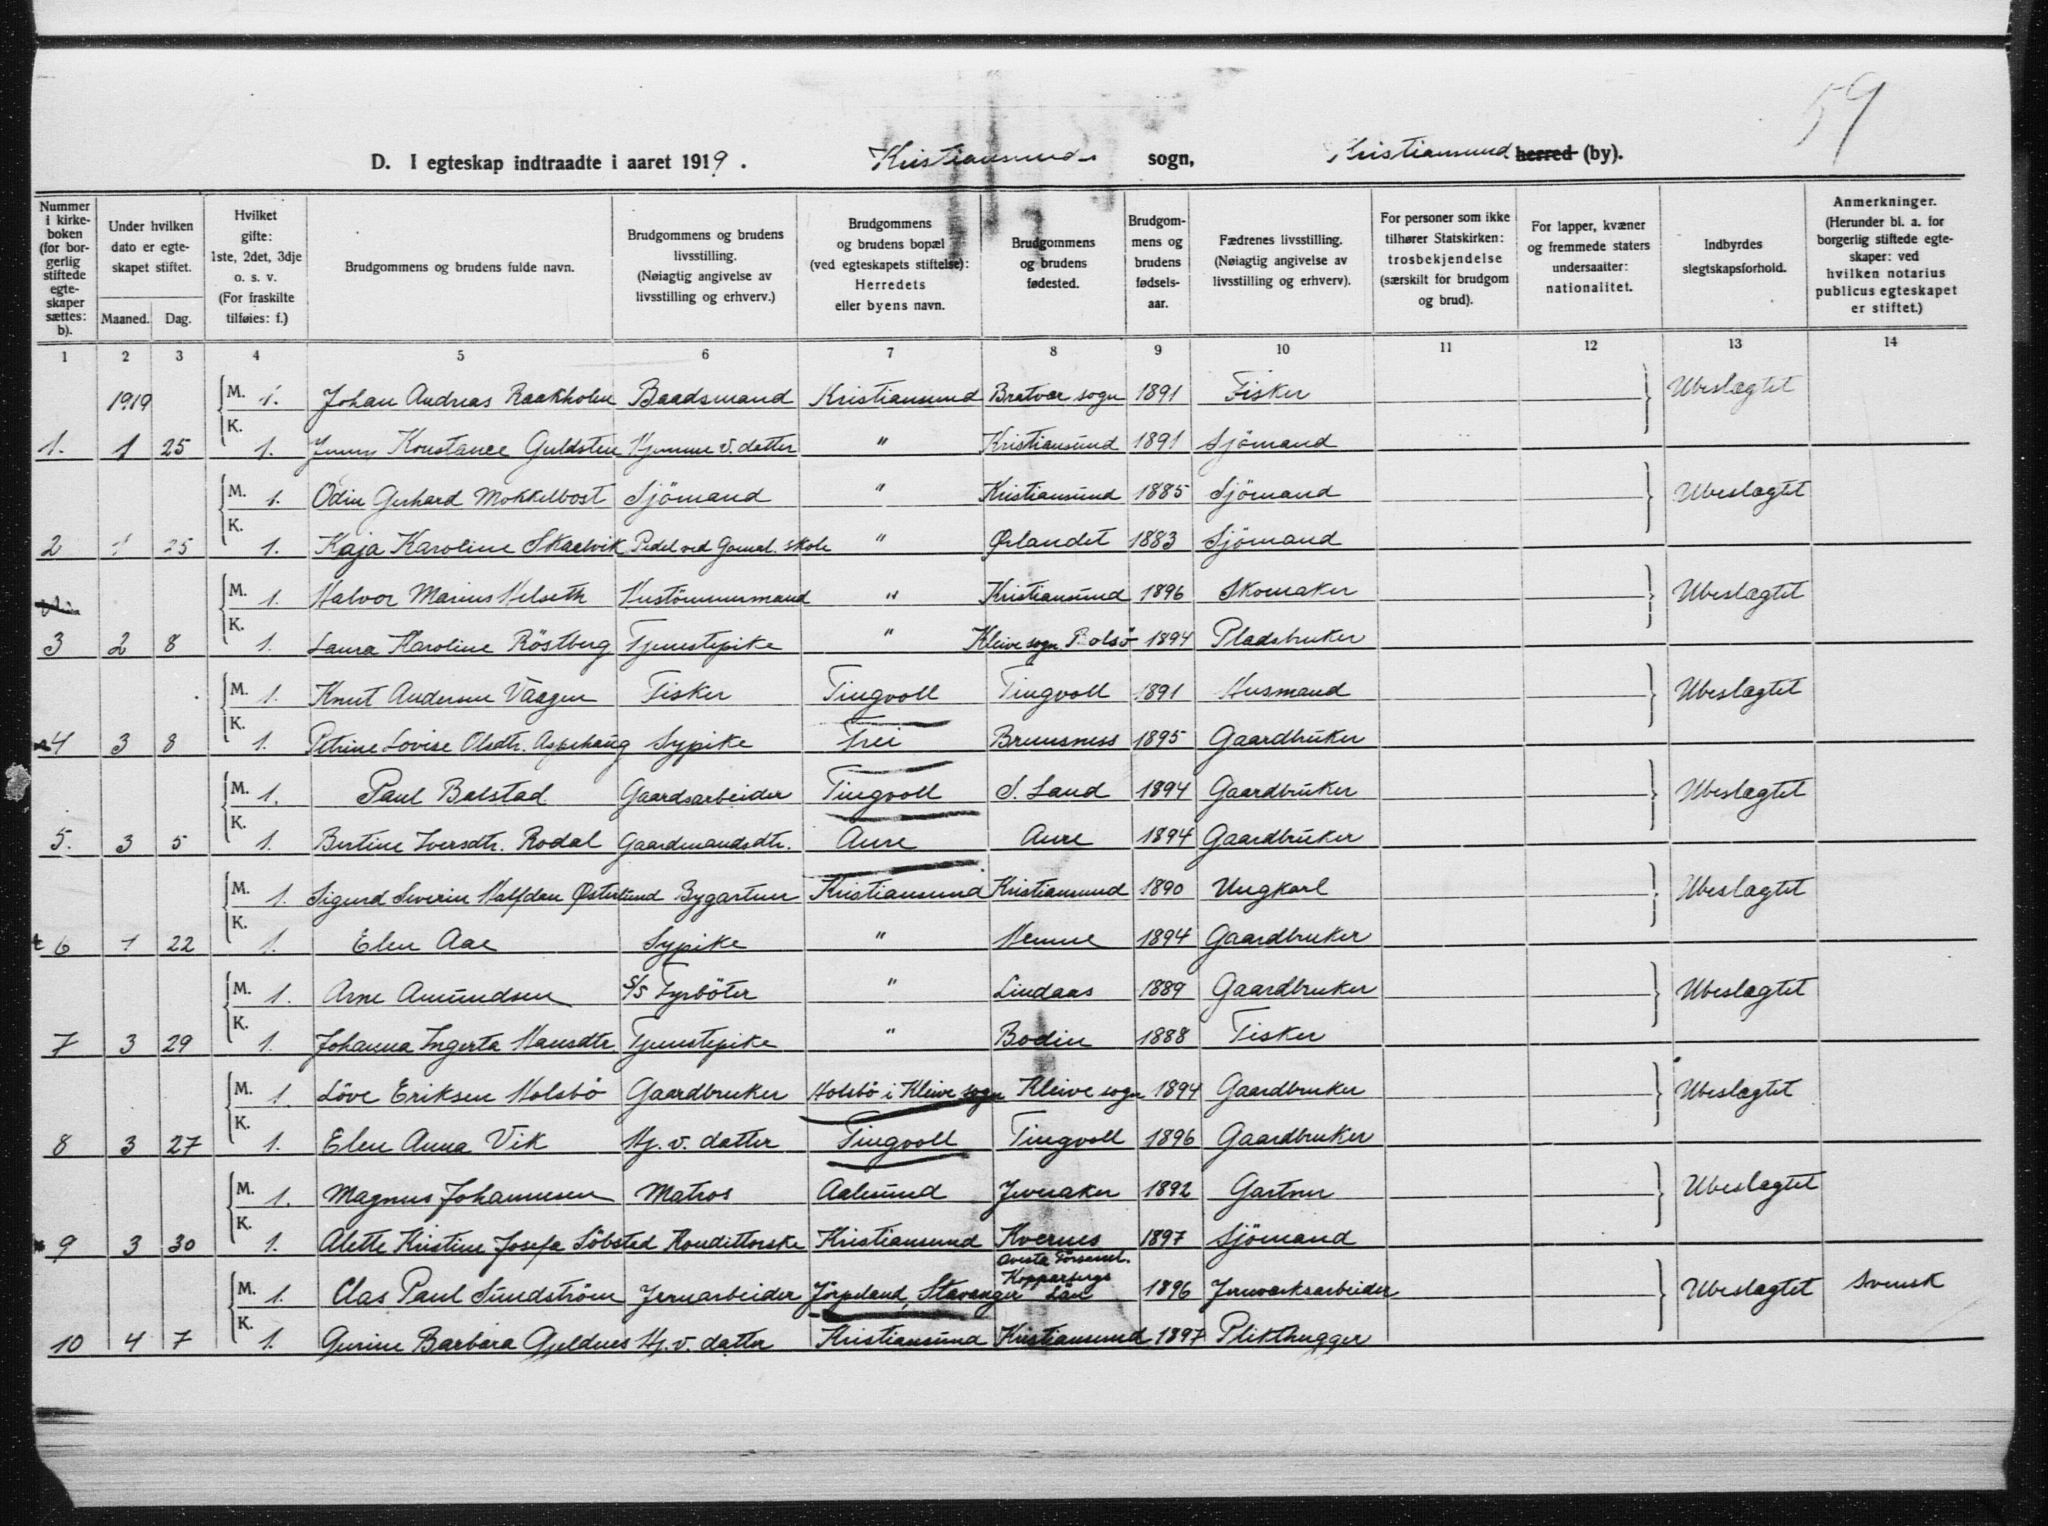 59
D. I egteskap indtraadte i aaret 1919. Kristiansunds sogn, Kristiansund herred (by).
Nummer i kirke-boken (for bor-gerlig stiftede egte-skaper sættes: b). Under hvilken dato er egte-skapet stiftet. Maaned. Dag. Hvilket gifte: 1ste, 2det, 3dje o. s. v. (For fraskilte tilføies: f.) Brudgommens og brudens fulde navn. Brudgommens og brudens livsstilling. (Nøiagtig angivelse av livsstilling og erhverv.) Brudgommens og brudens bopæl (ved egteskapets stiftelse): Herredets eller byens navn. Brudgommens og brudens fødested. Brudgom-mens og brudens fødsels-aar. Fædrenes livsstilling. (Nøiagtig angivelse av livsstilling og erhverv). For personer som ikke tilhører Statskirken: trosbekjendelse (særskilt for brudgom og brud). For lapper, kvæner og fremmede staters undersaatter: nationalitet. Indbyrdes slegtskapsforhold. Anmerkninger. (Herunder bl. a. for borgerlig stiftede egte-skaper: ved hvilken notarius publicus egteskapet er stiftet.)
1 2 3 4 5 6 7 8 9 10 11 12 13 14
1919 M. 1. Johan Andreas Raakholm Baadsmand Kristiansund Bratvær sogn 1891 Fisker Ubeslægtet
1. 1 25 K. 1. Jenny Konstance Guldsten Hjemme v. datter " Kristiansund 1891 Sjömand
M. 1. Odin Gerhard Mokkelbost Sjömand " Kristiansund 1885 Sjömand Ubeslægtet
2 1 25 K. 1. Kaja Karoline Skaelvik Pedel ved Gomal. skole " Ørlandet 1883 Sjömand
M. 1. Halvor Marius Helseth Hustömmermand " Kristiansund 1896 Skomaker Ubeslægtet
3 2 8 K. 1. Laura Karoline Röstberg Tjenestepike " Kleive sogn Bolsö 1894 Pladsbruker
M. 1. Knut Andersen Vaagen Fisker Tingvoll Tingvoll 1891 Husmand Ubeslægtet
4 3 8 K. 1. Petrine Lovise Olsdtr. Aspehaug Sypike Frei Bremsness 1895 Gaardbruker
M. 1. Paul Balstad Gaardsarbeider Tingvoll S. Land 1894 Gaardbruker Ubeslægtet
5. 3 5 K. 1. Bertine Iversdtr. Rodal Gaardmandsdtr. Aure Aure 1894 Gaardbruker
M. 1. Sigurd Severin Halfdan Østerlund Bygartner Kristiansund Kristiansund 1890 Ungkarl Ubeslægtet
6 1 22 K. 1. Elen Aae Sypike " Hemne 1894 Gaardbruker
M. 1. Arne Amundsen S/S Fyrböter " Lindaas 1889 Gaardbruker Ubeslægtet
7 3 29 K. 1. Johanna Ingerta Hansdtr Tjenestepike " Bodin 1888 Fisker
M. 1. Löve Eriksen Holsbö Gaardbruker Holsbö i Kleive sogn Kleive sogn 1894 Gaardbruker Ubeslægtet
8 3 27 K. 1. Elen Anna Vik Hj. v. datter Tingvoll Tingvoll 1896 Gaardbruker
M. 1. Magnus Johannesen Matros Aalesund Jweraker 1892 Gartner Ubeslægtet
9 3 30 K. 1. Alette Kristine Josefa Söbstad Kondittorske Kristiansund Kvernes 1897 Sjömand
M. 1. Clas Paul Sundström Jernarbeider Jörpeland, Stavanger Avesta Församl. Kopparbergs Län 1896 Jernverksarbeider Ubeslægtet Svensk
10 4 7 K. 1. Gurine Barbara Gjeldnes Hj. v. datter Kristiansund Kristiansund 1897 Plikthugger